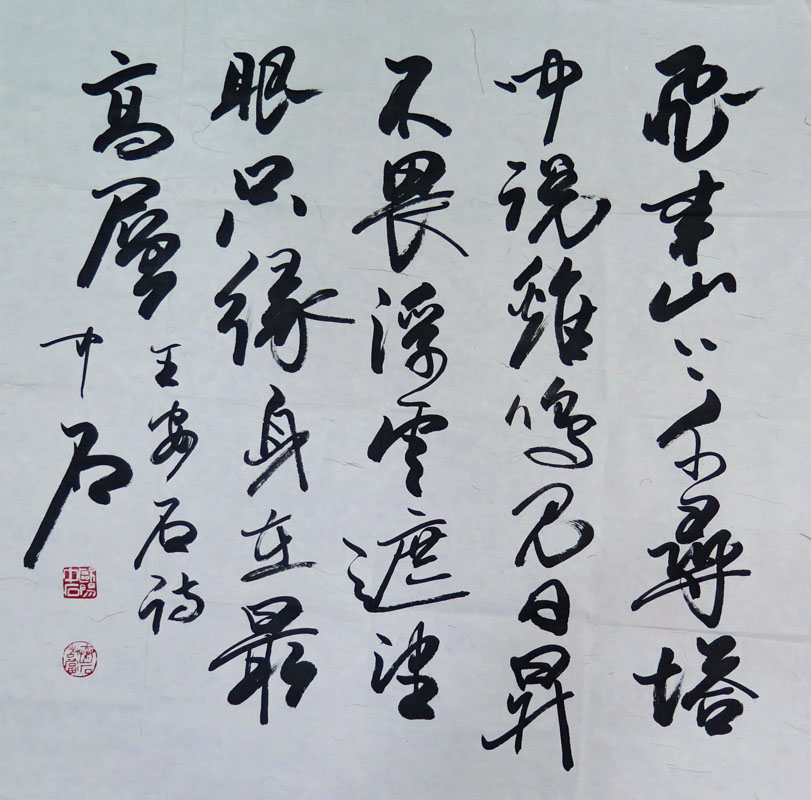 飛來山上千尋塔
聞說雞鳴見日昇
不畏浮雲遮望
眼只緣身在最
高層
王安石詩
中石
歐陽中石